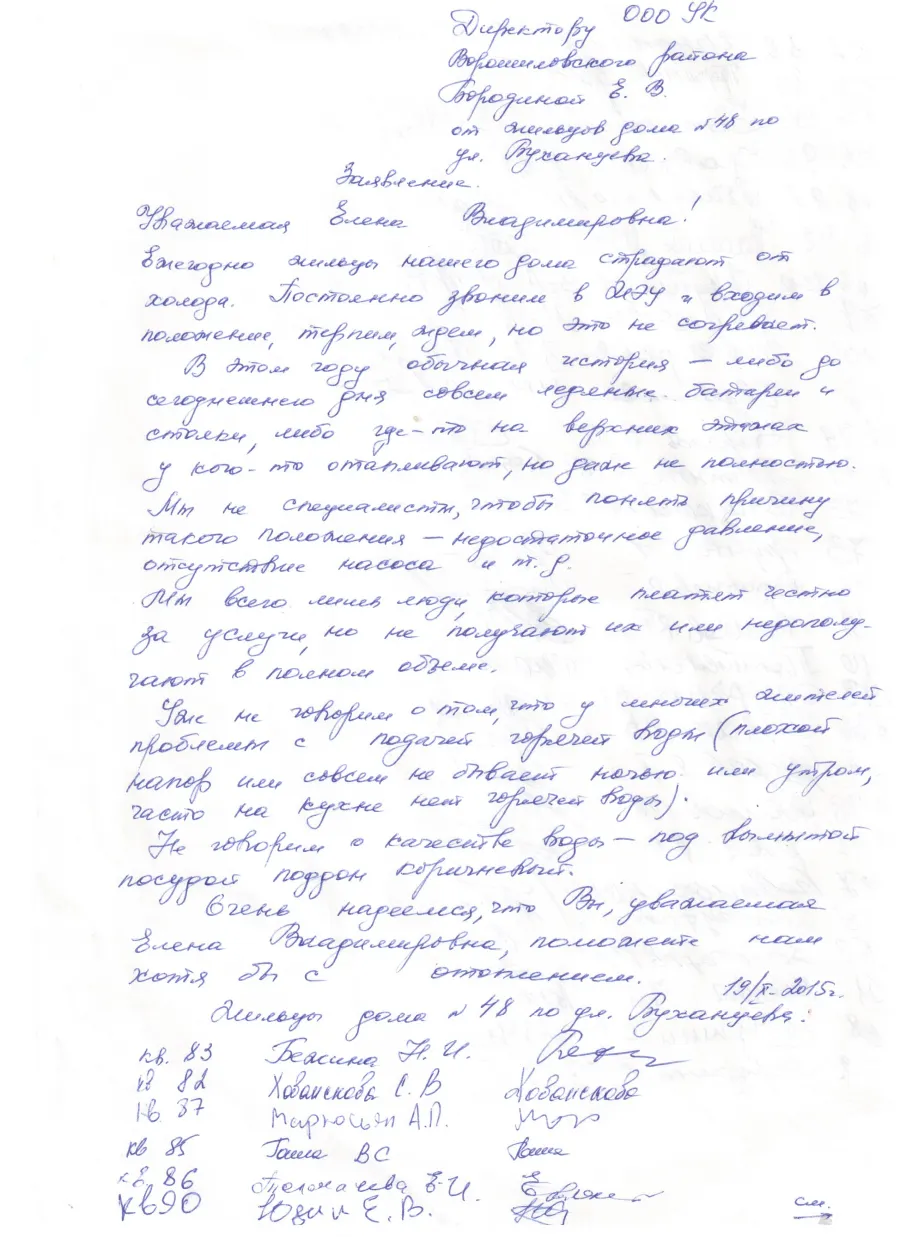 Директору ООО УК
Ворошиловского района
Бородиной Е. В.
от жильцов дома №48 по
ул. Буханцева.
Заявление.
Уважаемая Елена Владимировна!
Ежегодно жильцы нашего дома страдают от
холода. Постоянно звоним в ЖЭУ и входим в
положение, терпим, ждем, но это не согревает.
В этом году обычная история – либо до
сегоднешнего дня совсем ледяные батареи и
стояки, либо где-то на верхних этажах
у кого-то отапливают, но даже не полностью.
Мы не специалисты, чтобы понять причину
такого положения – недостаточное давление,
отсутствие насоса и т.д.
Мы всего лишь люди, которые платят честно
за услуги, но не получают их или недополу-
чают в полном объеме.
Уж не говорим о том, что у многих жителей
проблемы с подачей горячей воды (плохой
напор или совсем не бывает ночью или утром,
часто на кухне нет горячей воды).
Не говорим о качестве воды – под вымытой
посудой поддон коричневый.
Очень надеемся, что Вы, уважаемая
Елена Владимировна, поможете нам
хотя бы с отоплением.
19/X-2015г.
Жильцы дома №48 по ул. Буханцева:
кв. 83 Н.И.
кв 82 С. В
кв. 87 А.П.
кв 85 Гаша ВС Гаша
кв 86 Е.И.
кв 90 Е.В.
см.